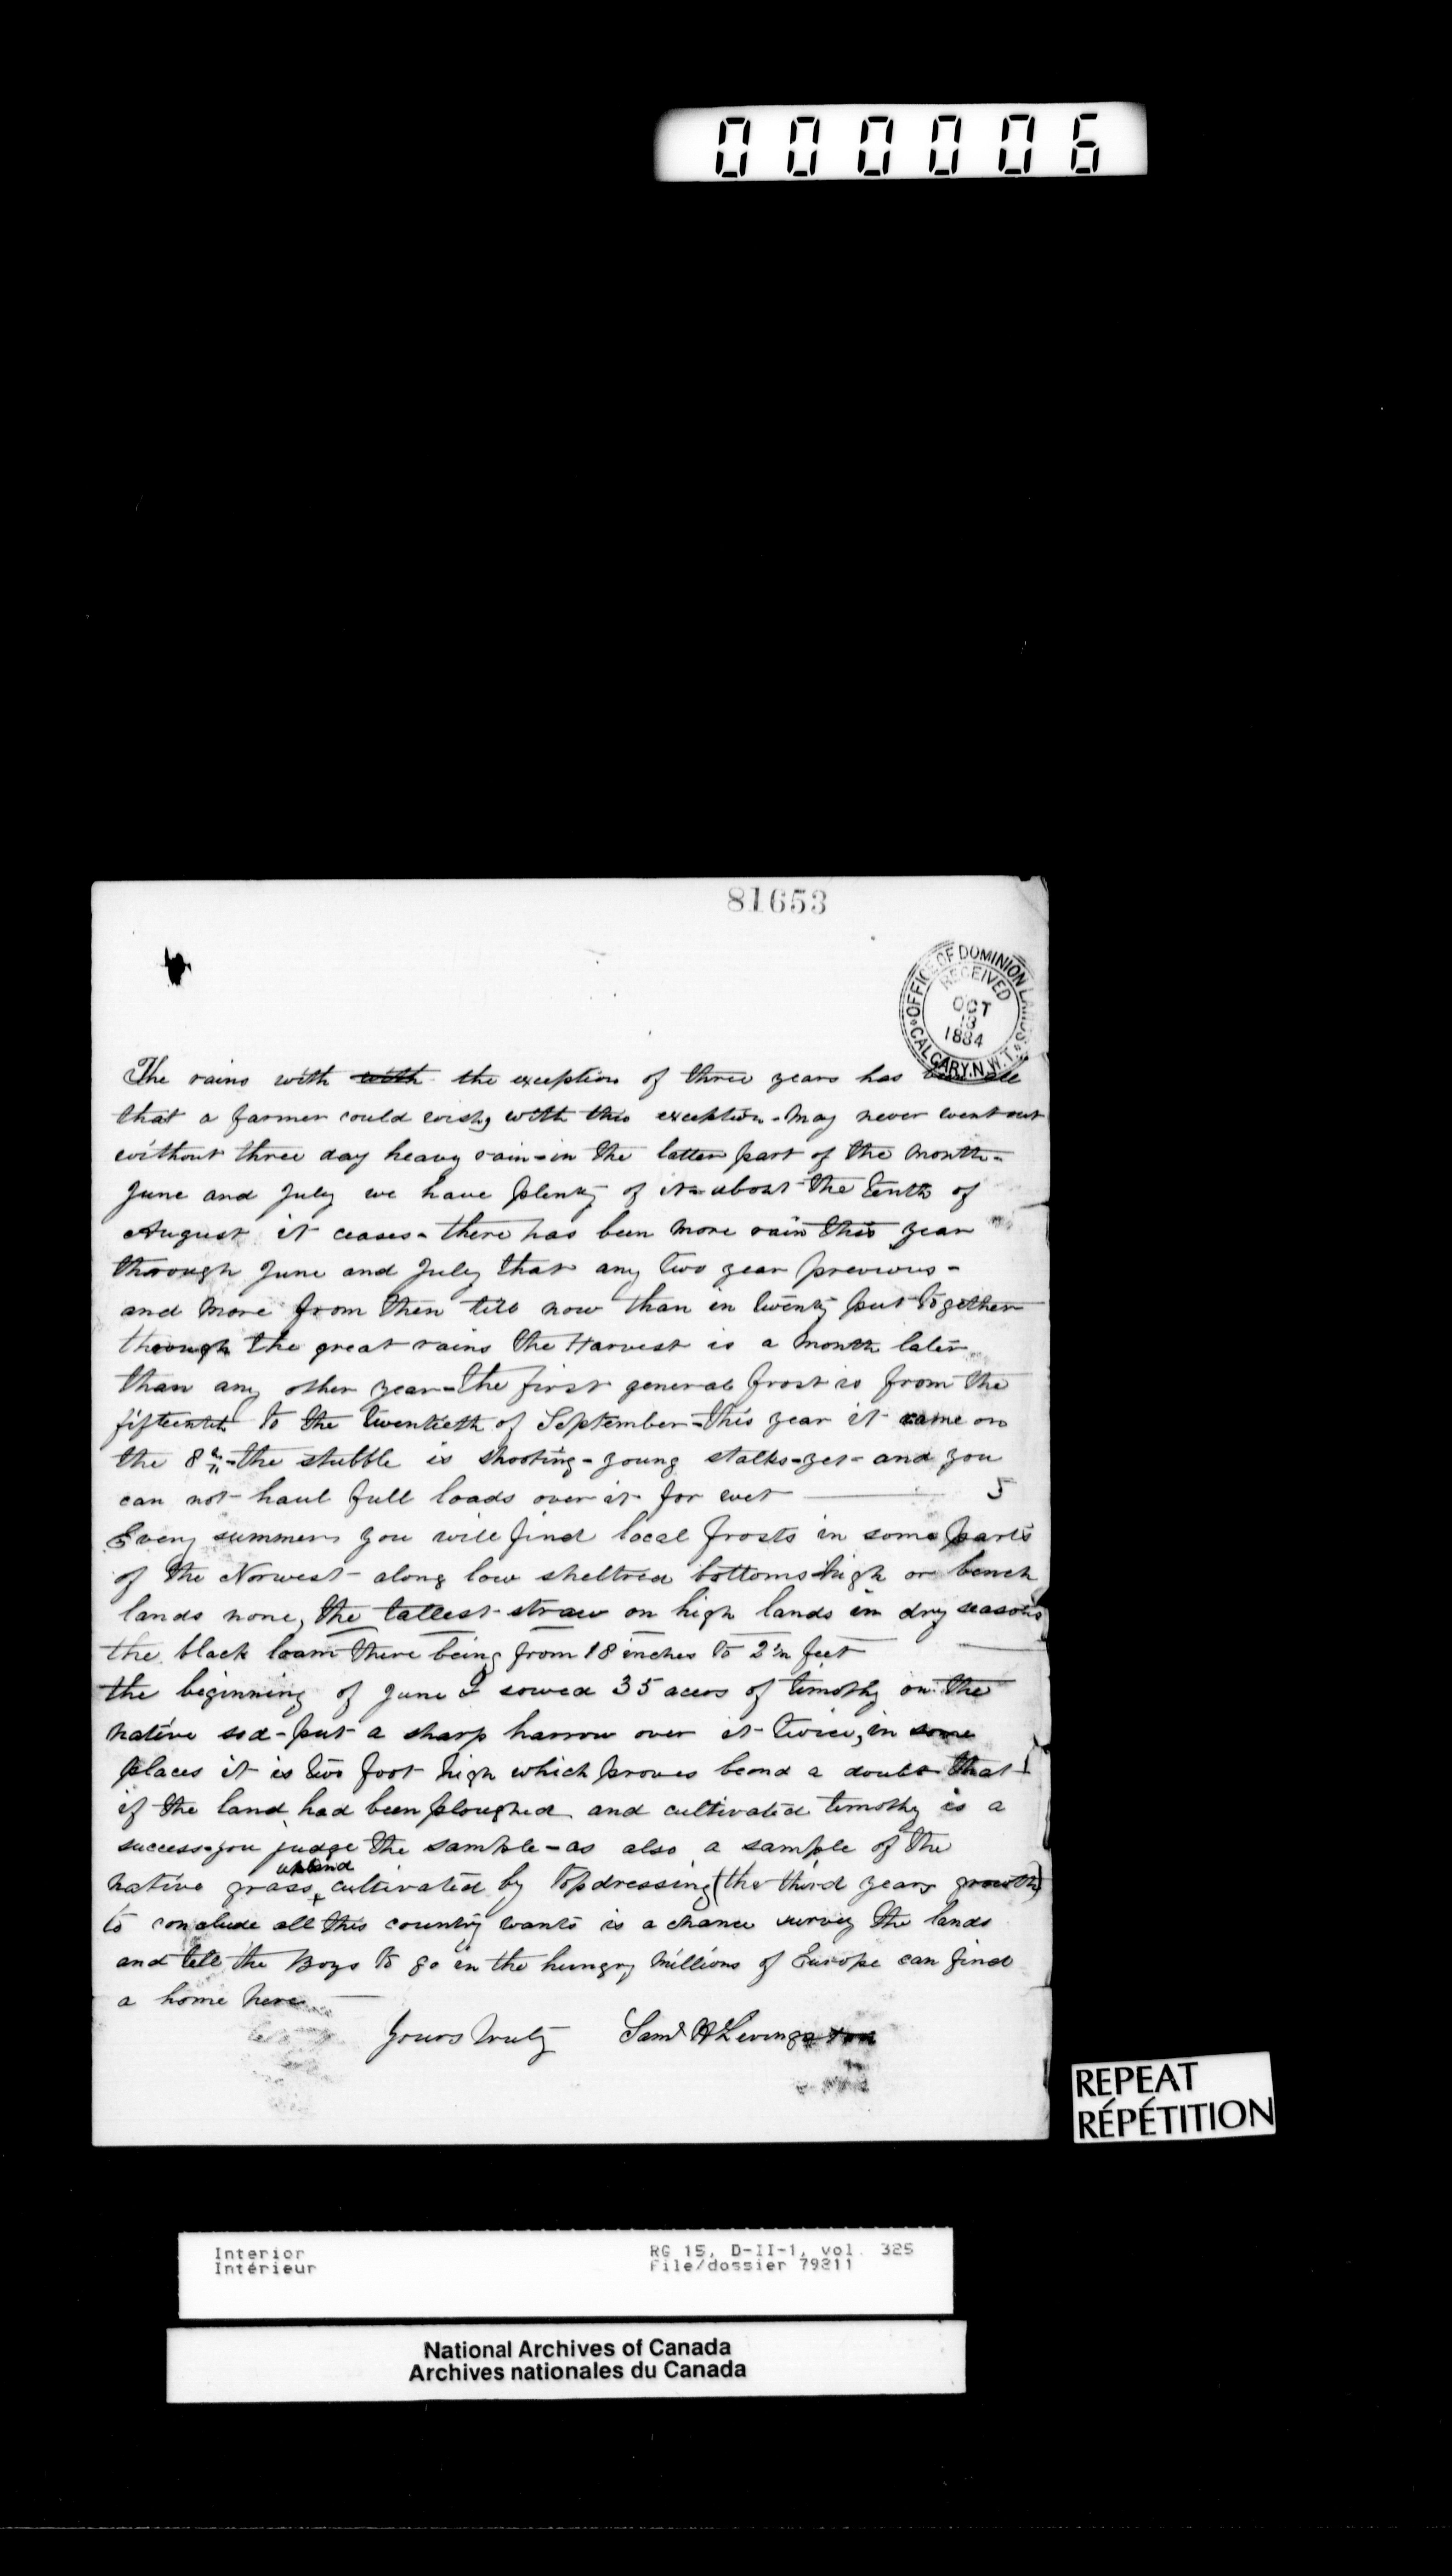 000006
81653
OFFICE OF DOMINION LANDS
RECEIVED
OCT
13
1884
CALGARY. N.W.T.
The rains with with the exception of three years has been all
that a farmer could wish, with this exception - May never went out
without three day heavy rain - in the latter part of the month -
June and July we have plenty of it - about the tenth of
August it ceases - there has been more rain this year
through June and July that any two year previous -
and more from then till now than in twenty put together
through the great rains the Harvest is a month later
than any other year - the first general frost is from the
fifteenth to the twentieth of September - this year it came on
the 8th - the stubble is shooting - young stalks - yet - and you
can not haul full loads over it for wet — 5
Every summer you will find local frosts in some parts
of the Norwest - along low sheltred bottoms - high or bench
lands none, the tallest straw on high lands in dry seasons
the black loam there being from 18 inches to 2½ feet
the beginning of June I sowed 35 acers of timothy on the
native sod - put a sharp harrow over it twice, in some
places it is two foot high which proves beond a doubt that
if the land had been ploughed and cultivated timothy is a
success - you judge the sample - as also a sample of the
upland
native grass, cultivated by topdressing (the third years growth)
to conclude all this country wants is a chance survey the lands
and tell the Boys to go in the hungry millions of Europe can find
a home here —
Yours truly Saml H Livingston
REPEAT
RÉPÉTITION
Interior RG 15, D-II-1, vol. 325
Intérieur File/dossier 79811
National Archives of Canada
Archives nationales du Canada